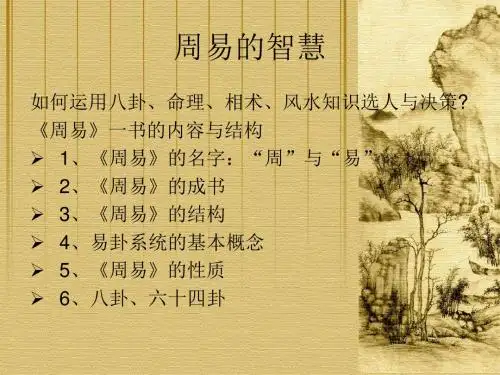 周易的智慧
如何运用八卦、命理、相术、风水知识选人与决策?
《周易》一书的内容与结构
➢ 1、《周易》的名字：“周”与“易”
➢ 2、《周易》的成书
➢ 3、《周易》的结构
➢ 4、易卦系统的基本概念
➢ 5、《周易》的性质
➢ 6、八卦、六十四卦